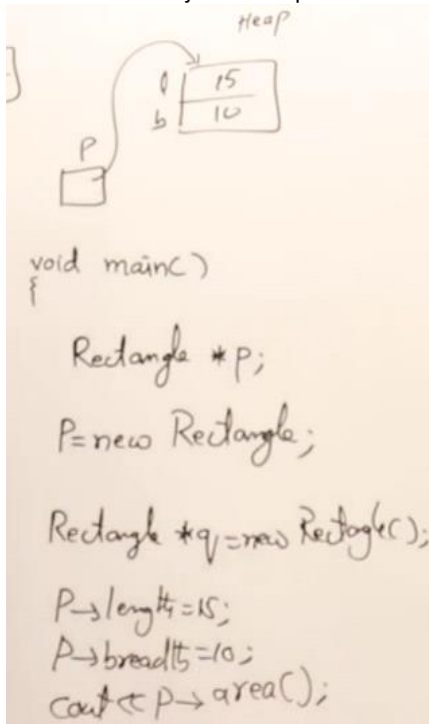 Heap
l 15
b 10
P
void main()
{
Rectangle *p;
P=new Rectangle;
Rectangle *q=new Rectagle();
P→length=15;
P→breadth=10;
cout << P→area();